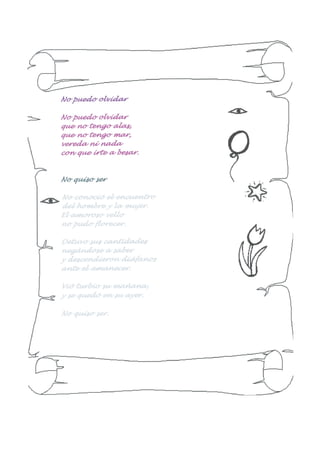 No puedo olvidar
No puedo olvidar
que no tengo alas,
que no tengo mar,
vereda ni nada
con que irte a besar.
No quiso ser
No conoció el encuentro
del hombre y la mujer.
El amoroso vello
no pudo florecer.
Detuvo sus cantidades
negándose a saber
y descendieron diáfanos
ante el amanecer.
Vio turbio su mañana,
y se quedó en su ayer.
No quiso ser.